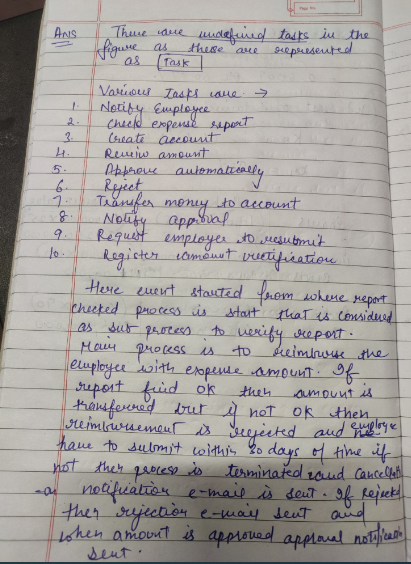 Ans There are undefined tasks in the
figure as these are represented
as Task
Various Tasks are →
1. Notify Employee
2. Check expense report
3. Create account
4. Review amount
5. Approve automatically
6. Reject
7. Transfer money to account
8. Notify approval
9. Request employee to resubmit
10. Register amount
Here event started from where report
checked process is start that is considered
as sub process to verify report.
Main process is to reimburse the
employee with expense amount. If
report find OK then amount is
transferred but if not OK then
reimbursement is rejected and employee
have to submit within 30 days of time if
not then process is terminated and
a notification e-mail is sent. If rejects
then rejection e-mail sent and
when amount is approved approval notification
sent.